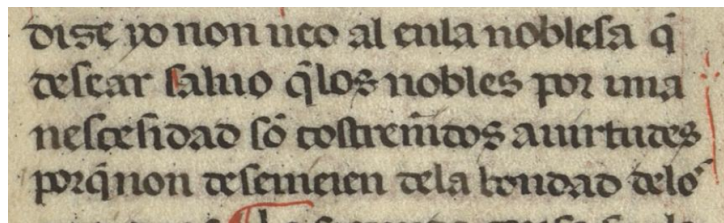 dise yo non ueo al enla noblesa q̃
desear saluo q̃los nobles por una
nescesidad sõ costrenidos a uirtudes
porq̃ non desemeien dela bondad delos